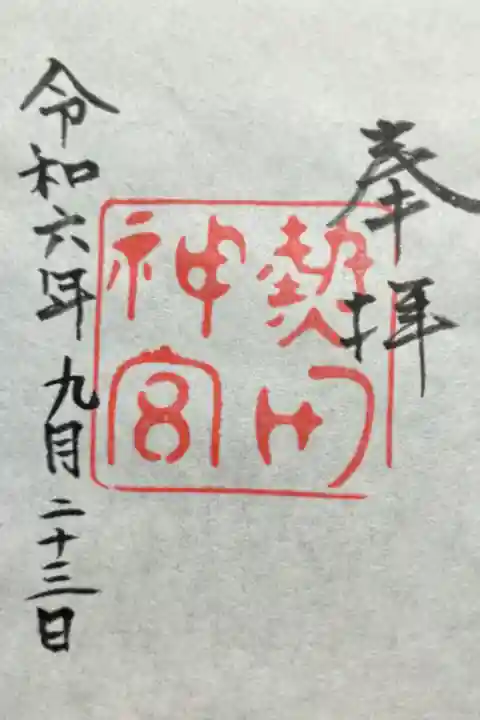 奉拝
熱田
神宮
令和六年九月二十三日